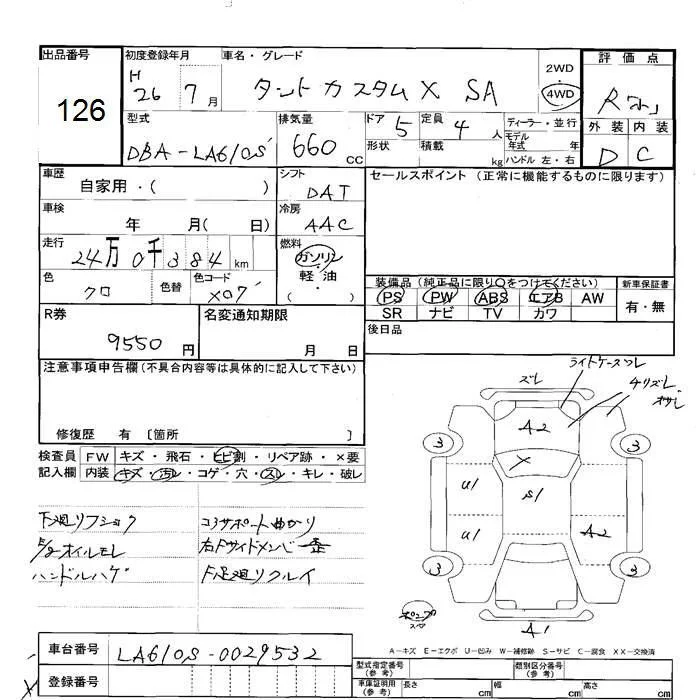 出品番号
126
初度登録年月
H
26 7月
車名・グレード
タント カスタム X SA
2WD
・
4WD
評価点
外装 内装
D C
型式
DBA-LA610S
排気量
660 cc
ドア 5
形状
定員 4 人
積載 kg
ディーラー・並行
モデル
年式 年
ハンドル 左・右
車歴
自家用・( )
シフト
DAT
セールスポイント (正常に機能するものに限ります)
車検
年 月( 日)
冷房
AAC
走行
24万0千384 km
燃料
ガソリン
軽・油
( ・ )
色
クロ
色替
色コード
X07
装備品 (純正品に限り○をつけてください)
PS PW ABS エアB AW
SR ナビ TV カワ
新車保証書
有・無
R券
9550 円
名変通知期限
月 日
後日品
注意事項申告欄 (不具合内容等は具体的に記入して下さい)
修復歴 有 〔箇所 〕
検査員
記入欄
FW キズ・飛石・ヒビ割・リペア跡・×要
内装 キズ・汚レ・コゲ・穴・スレ・キレ・破レ
下廻リフショク
コアサポート曲がり
E/gオイルモレ
右Fサイドメンバー歪
ハンドルハゲ
F足廻リクルイ
ライトケースワレ
ズレ
チリズレ
オサレ
A2
3 3
X
U1
S1
U1
A2
3 3
A1
A-キズ E-エクボ U-凹み W-補修跡 S-サビ C-腐食 XX-交換済
車台番号
LA610S-0029532
登録番号
型式指定番号
(参考)
類別区分番号
(参考)
車庫証明用
(参考)
長さ cm
幅 cm
高さ cm